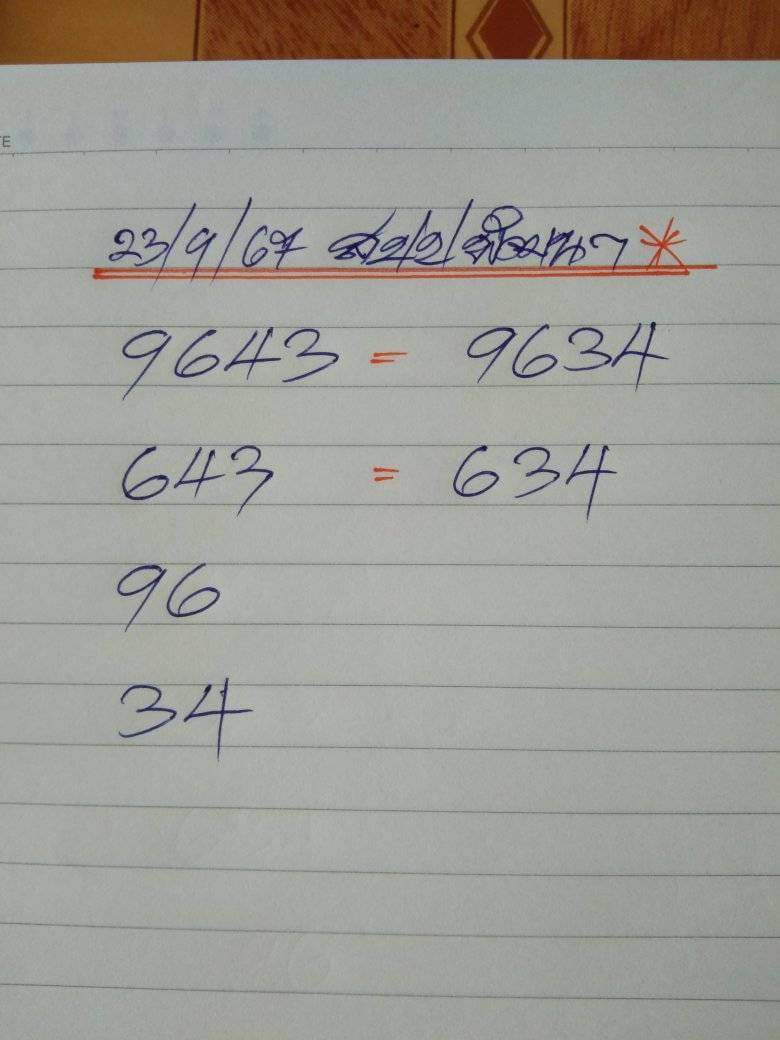 TE
23/9/67
9643 = 9634
643 = 634
96
34